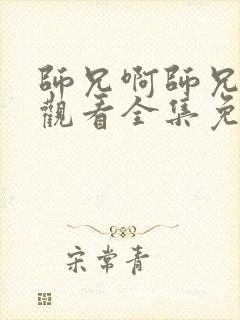 師兄啊師兄
觀看全集免
宋常青